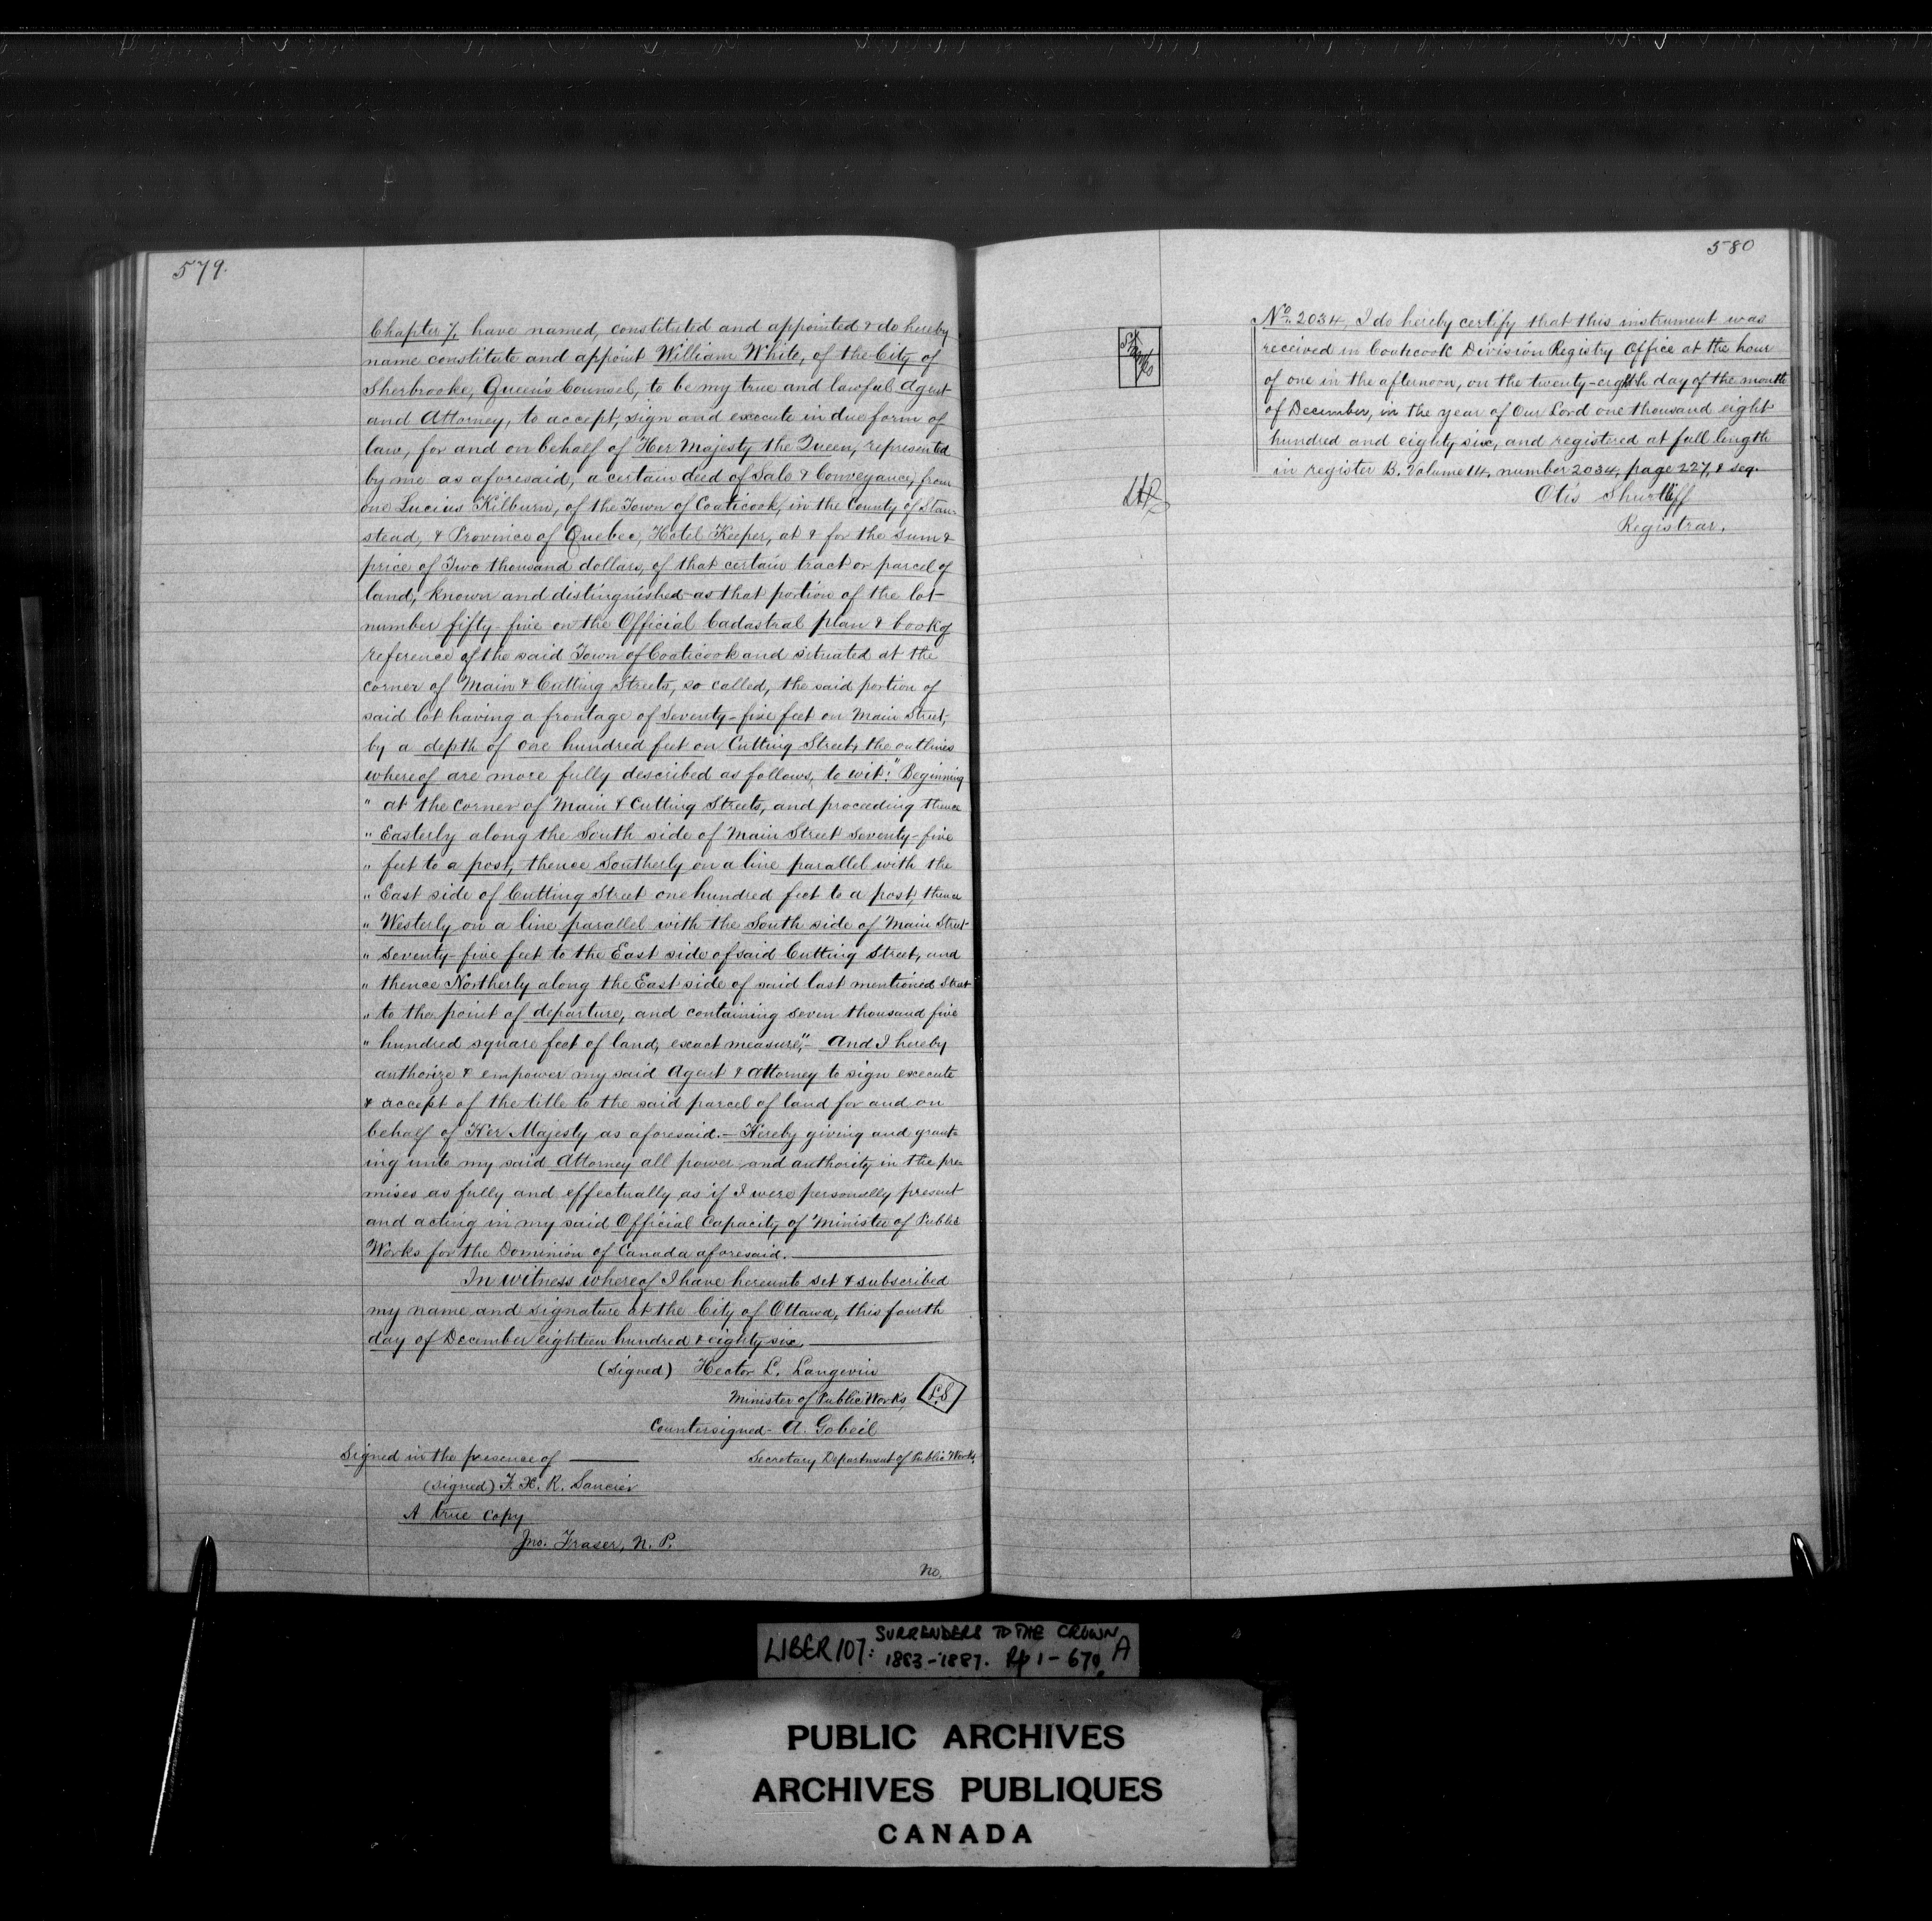 579.
Chapter 7, have named, constituted and appointed & do hereby
name constitute and appoint William White, of the City of
Sherbrooke, Queen's Counsel, to be my true and lawful Agent
and Attorney, to accept, sign and execute in due form of
law, for and on behalf of Her Majesty the Queen, represented
by me as aforesaid, a certain deed of Sale & Conveyance, from
one Lucius Kilburn, of the Town of Coaticook, in the County of Stan-
stead, & Province of Quebec, Hotel Keeper, at & for the sum &
price of Two thousand dollars, of that certain tract or parcel of
land, known and distinguished as that portion of the lot
number fifty-five on the Official Cadastral plan & book of
reference of the said Town of Coaticook and situated at the
corner of Main & Cutting Streets, so called, the said portion of
said lot having a frontage of Seventy-five feet on Main Street,
by a depth of one hundred feet on Cutting Street, the outlines
whereof are more fully described as follows, to wit: "Beginning
" at the corner of Main & Cutting Streets, and proceeding thence
" Easterly along the South side of Main Street Seventy-five
" feet to a post, thence Southerly on a line parallel with the
" East side of Cutting Street one hundred feet to a post, thence
" Westerly on a line parallel with the South side of Main Street
" Seventy-five feet to the East side of said Cutting Street, and
" thence Northerly along the East side of said last mentioned Street
" to the point of departure, and containing seven thousand five
" hundred square feet of land, exact measure",- And I hereby
authorize & empower my said Agent & Attorney to sign execute
& accept of the title to the said parcel of land for and on
behalf of Her Majesty as aforesaid.- Hereby giving and grant-
ing unto my said Attorney all power and authority in the pre-
mises as fully and effectually as if I were personally present
and acting in my said Official Capacity of Minister of Public
Works for the Dominion of Canada aforesaid.
In witness whereof I have hereunto set & subscribed
my name and signature at the City of Ottawa, this fourth
day of December eighteen hundred & eighty six,
(signed) Hector L. Langevin
Minister of Public Works, L.S
Countersigned- A. Gobeil
Secretary Department of Public Works,
Signed in the presence of
(signed) F. X. R. Saucier
A true Copy
Jno. Fraser, N. P.
No.
580
No. 2034, I do hereby certify that this instrument was
received in Coaticook Division Registry Office at the hour
of one in the afternoon, on the twenty-eighth day of the month
of December, in the year of Our Lord one thousand eight
hundred and eighty six, and registered at full length
in register B. Volume 14, number 2034, page 227, & seq.
Otis Shurtliff
Registrar.
LIBER 107: SURRENDERS TO THE CROWN A
1883-1887. Pp 1-670
PUBLIC ARCHIVES
ARCHIVES PUBLIQUES
CANADA